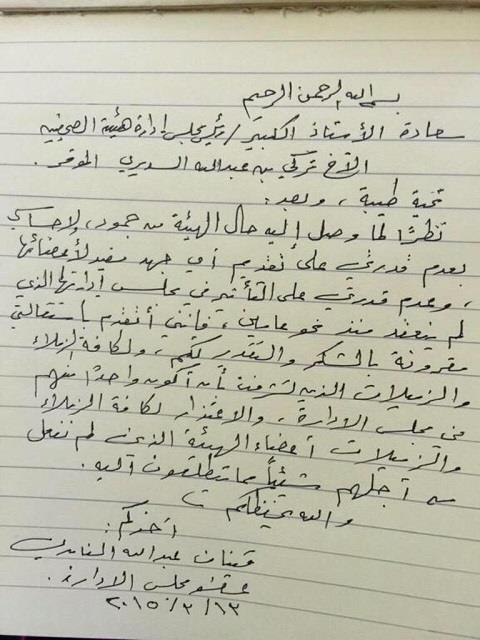 بسم الله الرحمن الرحيم
سعادة الأستاذ الكبير / رئيس مجلس إدارة هيئة الصحفيين
الأخ تركي بن عبدالله السديري الموقر .
تحية طيبة ، وبعد :
نظرًا لما وصل إليه حال الهيئة من جمود ، ولإحساسي
بعدم قدرتي على تقديم أي جهد مفيد لأعضائها
، وعدم قدرتي على التأثير في مجلس إدارتها الذي
لم ينعقد منذ نحو عامين ، فإنني أتقدم باستقالتي
مقرونة بالشكر والتقدير لكم ، ولكافة الزملاء
والزميلات الذين تشرفت بأن أكون واحدًا منهم
في مجلس الادارة ، والاعتذار لكافة الزملاء
والزميلات أعضاء الهيئة الذين لم نفعل
من أجلهم شيئًا مما يتطلعون اليه .
والله يحفظكم
أخوكم :
قينان عبدالله الغامدي
عضو مجلس الادارة .
٢٠١٥/٣/١٣